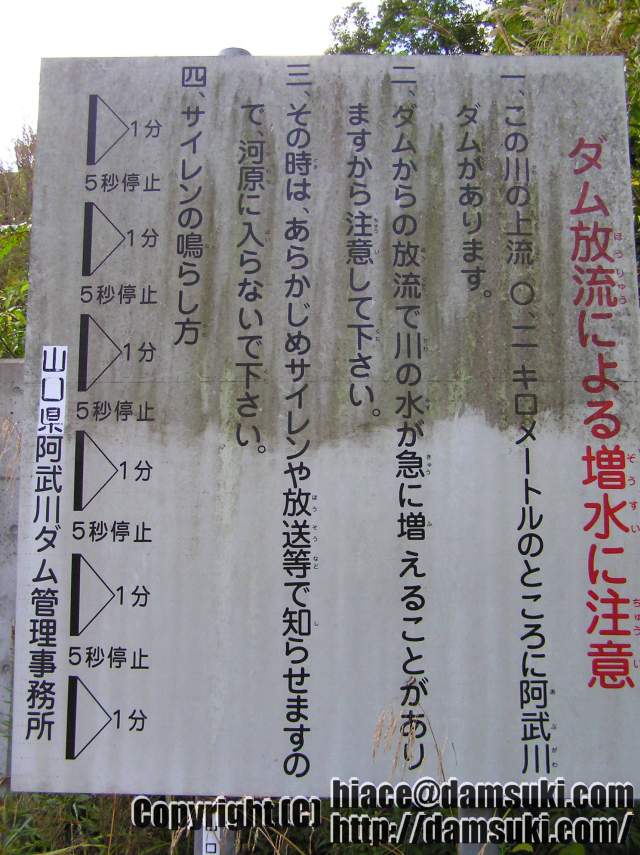 ダム放流による増水に注意
一、この川の上流 〇、二 キロメートルのところに阿武川
ダムがあります。
二、ダムからの放流で川の水が急に増えることがあり
ますから注意して下さい。
三、その時は、あらかじめサイレンや放送等で知らせますの
で、河原に入らないで下さい。
四、サイレンの鳴らし方
1分
5秒停止
1分
5秒停止
1分
5秒停止
1分
5秒停止
1分
5秒停止
1分
山口県阿武川ダム管理事務所
Copyright(C) hiace@damsuki.com
http://damsuki.com/